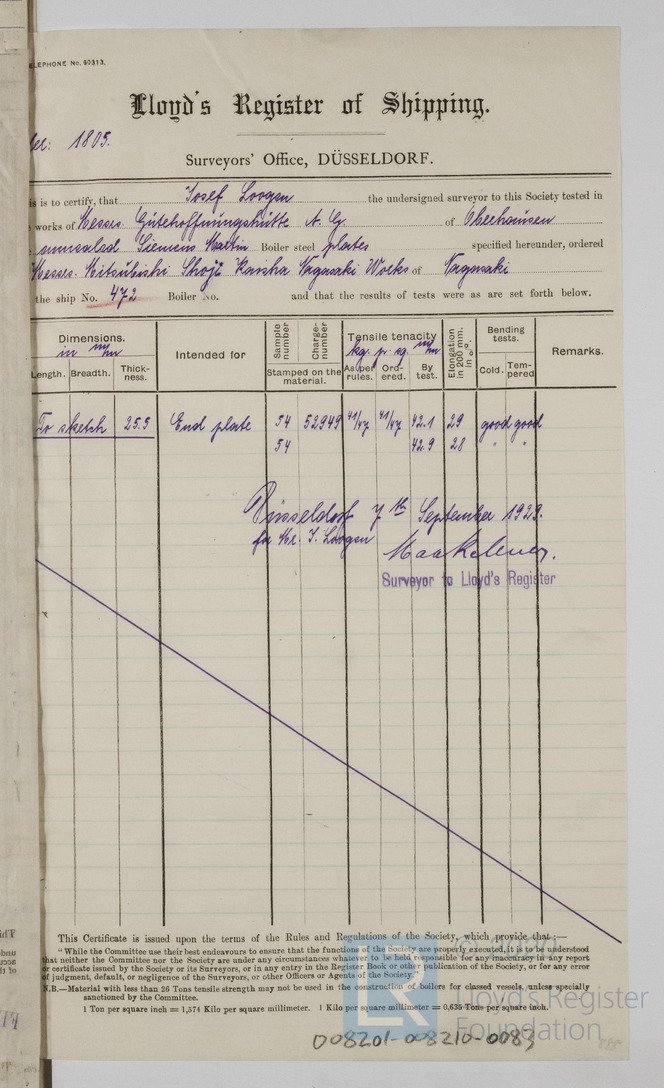 TELEPHONE No. 60313.
Lloyd's Register of Shipping.
1805.
Surveyors' Office, DÜSSELDORF.
is is to certify, that Josef Loogen the undersigned surveyor to this Society tested in
works of Messrs. Gutehoffnungshütte A. G. of Oberhausen
annealed Siemens Martin Boiler steel plates specified hereunder, ordered
Messrs. Mitsubishi Shoji Kaisha Nagasaki Works of Nagasaki
the ship No. 472 Boiler No. and that the results of tests were as are set forth below.
Dimensions. in m/m
Length. Breadth. Thick-ness.
Intended for
Sample number Charge-number
Stamped on the material.
Tensile tenacity kg. p. sq. m/m
As per rules. Ord-ered. By test.
Elongation in 200 mm. in %.
Bending tests.
Cold. Tem-pered
Remarks.
To sketch 25.5 End plate 54 52949 41/47 41/47 42.1 29 good good
54 42.9 28 " "
Düsseldorf 7th September 1929.
for Mr. J. Loogen
Surveyor to Lloyd's Register
This Certificate is issued upon the terms of the Rules and Regulations of the Society, which provide that:—
"While the Committee use their best endeavours to ensure that the functions of the Society are properly executed, it is to be understood
that neither the Committee nor the Society are under any circumstances whatever to be held responsible for any inaccuracy in any report
or certificate issued by the Society or its Surveyors, or in any entry in the Register Book or other publication of the Society, or for any error
of judgment, default, or negligence of the Surveyors, or other Officers or Agents of the Society."
N.B.—Material with less than 26 Tons tensile strength may not be used in the construction of boilers for classed vessels, unless specially
sanctioned by the Committee.
1 Ton per square inch = 1,574 Kilo per square millimeter. 1 Kilo per square millimeter = 0,635 Tons per square inch.
© 2020
LR
Lloyd's Register
Foundation
008201-008210-0083